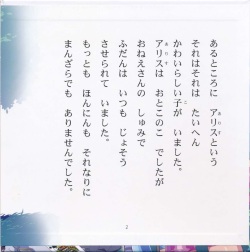 あるところに アリスという
それはそれは たいへん
かわいらしい子が いました。
アリスは おとこのこ でしたが
おねえさんの しゅみで
ふだんは いつも じょそう
させられて いました。
もっとも ほんにんも それなりに
まんざらでも ありませんでした。
2